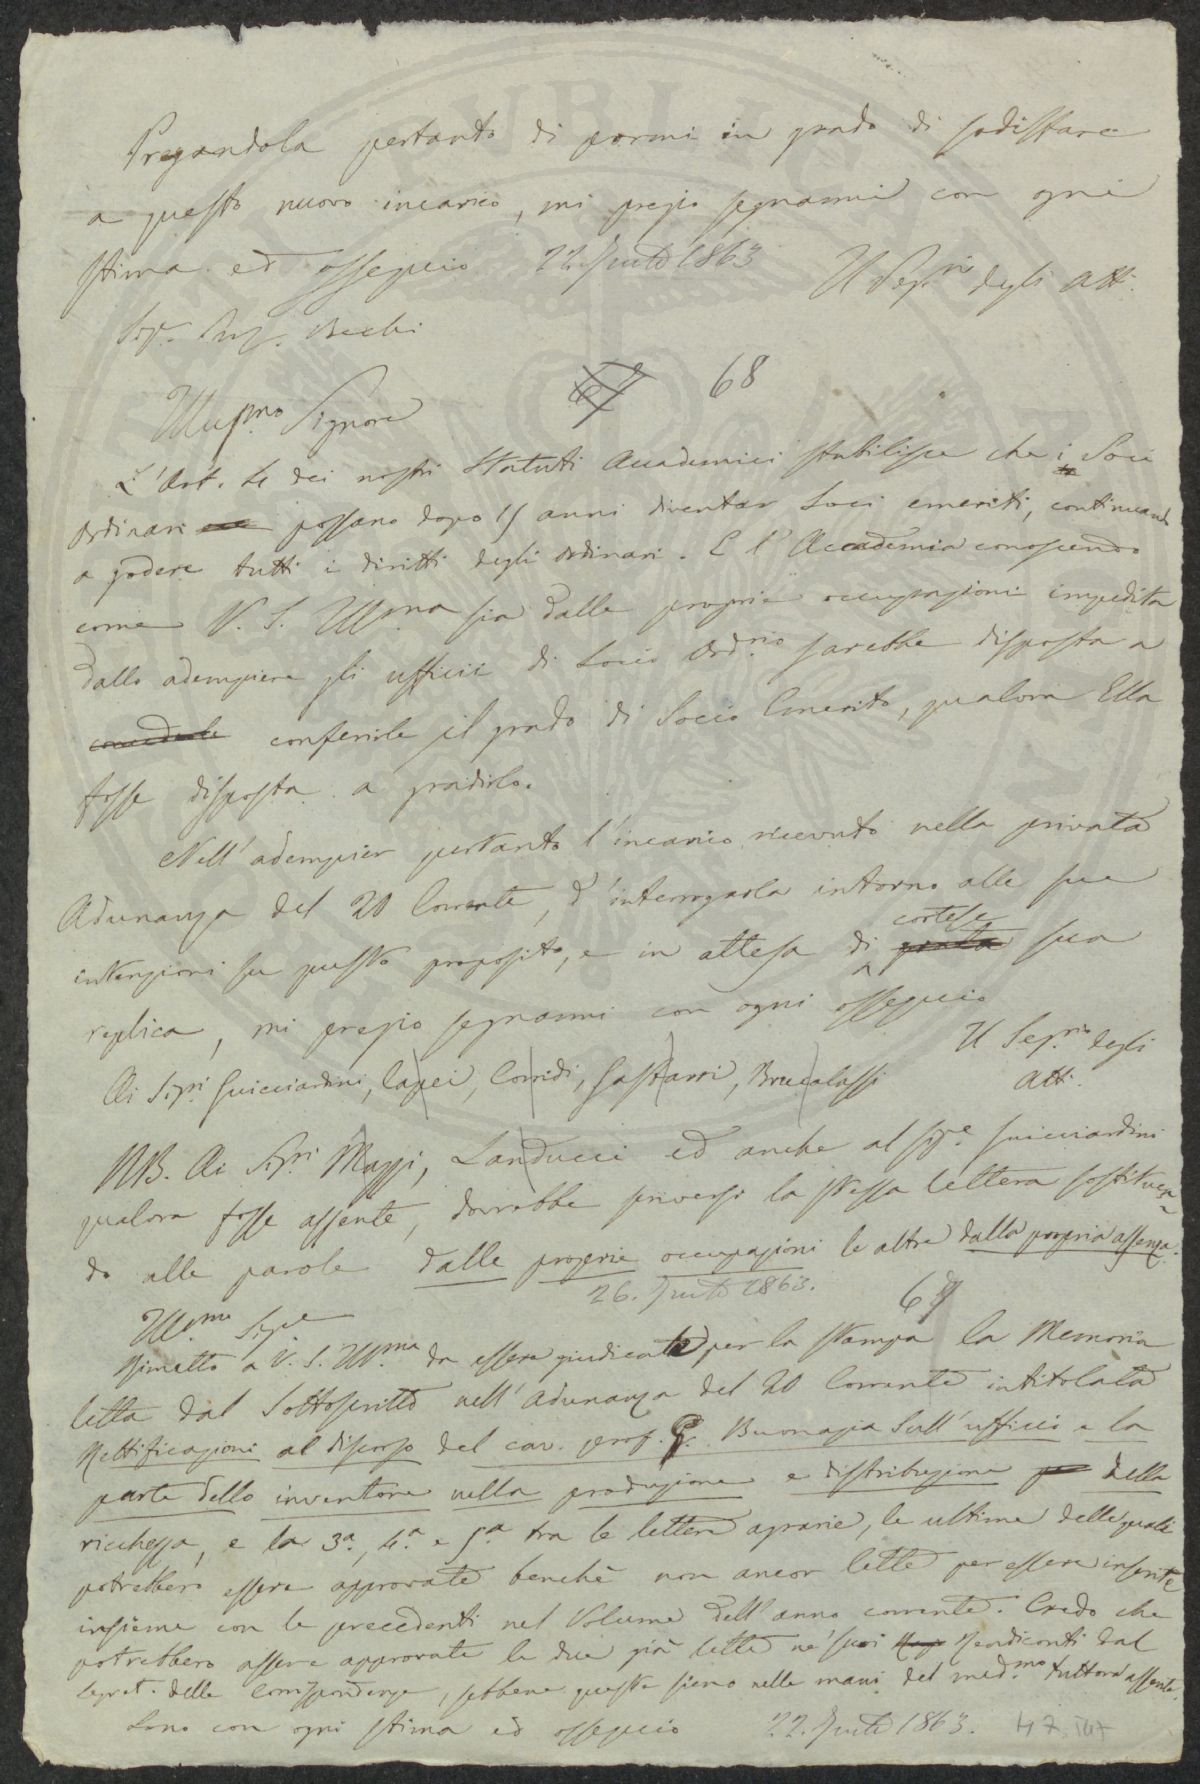 Pregandola pertanto di pormi in grado di sodisfare
a questo nuovo incarico, mi pregio segnarmi con ogni
stima ed ossequio 22. 1863 Il Seg.rio degli Atti.
Sig.
Illus.mo Signore 67 68
L'Art. 4 dei nostri Statuti Accademici stabilisce che i Soci
ordinari possano dopo 15 anni diventar Soci emeriti, continuando
a godere tutti i diritti degli ordinari. E l'Accademia conoscendo
come V. S. Ill.ma sia dalle proprie occupazioni impedita
dallo adempiere gli ufficii di Socio Ord.rio sarebbe disposta a
concederle conferirle il grado di Socio Emerito, qualora Ella
fosse disposta a gradirlo.
Nell'adempier pertanto l'incarico ricevuto nella privata
Adunanza del 20 Corrente, d'interrogarla intorno alle sue
intenzioni su questo proposito, e in attesa di cortese grata sua
replica, mi pregio segnarmi con ogni ossequio
Il Seg.rio degli
Ai Sig.ri Guicciardini, Capei, Corridi, Gaszarri, Brucalassi Atti.
NB. Ai Sig.ri Mazzi, Landucci ed anche al Sig.e Guicciardini
qualora fosse assente, dovrebbe scriversi la stessa lettera sostituen
do alle parole dalle proprie occupazioni le altre dalla propria assenza.
26. 1863. 67
Ill.mo Sig.e
Rimetto a V. S. Ill.ma da essere giudicate per la stampa la Memoria
letta dal Sottoscritto nell'Adunanza del 20 Corrente intitolata
Rettificazioni al discorso del cav. prof. Buonazia Sull'ufficio e la
parte dello inventore nella produzione e distribuzione della
ricchezza, e la 3a., 4.a e 5.a tra le lettere agrarie, le ultime delle quali
potrebbero essere approvate benchè non ancor lette per essere inserite
insieme con le precedenti nel Volume dell'anno corrente. Credo che
potrebbero essere approvate le due già lette ne' suoi Rendiconti dal
Segret. delle Corrispondenze, sebbene queste sieno nelle mani del med.mo tuttora assente.
Sono con ogni stima ed ossequio 22. 1863.